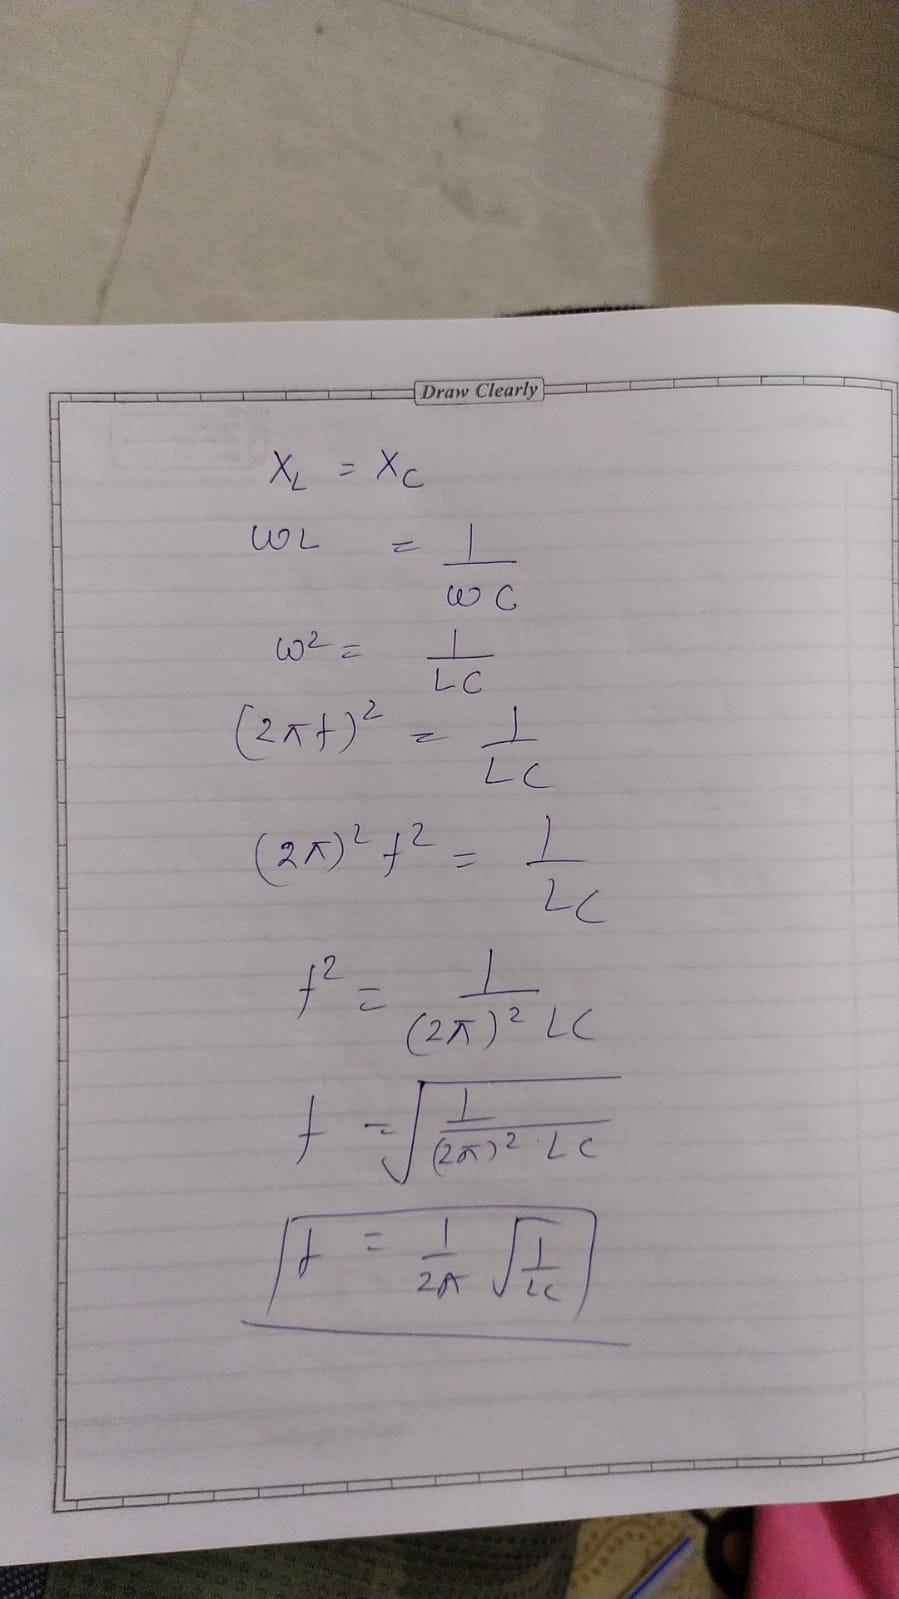 Draw Clearly
X_L = X_C
ωL = 1/ωC
ω² = 1/LC
(2πf)² = 1/LC
(2π)² f² = 1/LC
f² = 1/(2π)² LC
f = √(1/(2π)² LC)
f = 1/2π √(1/LC)